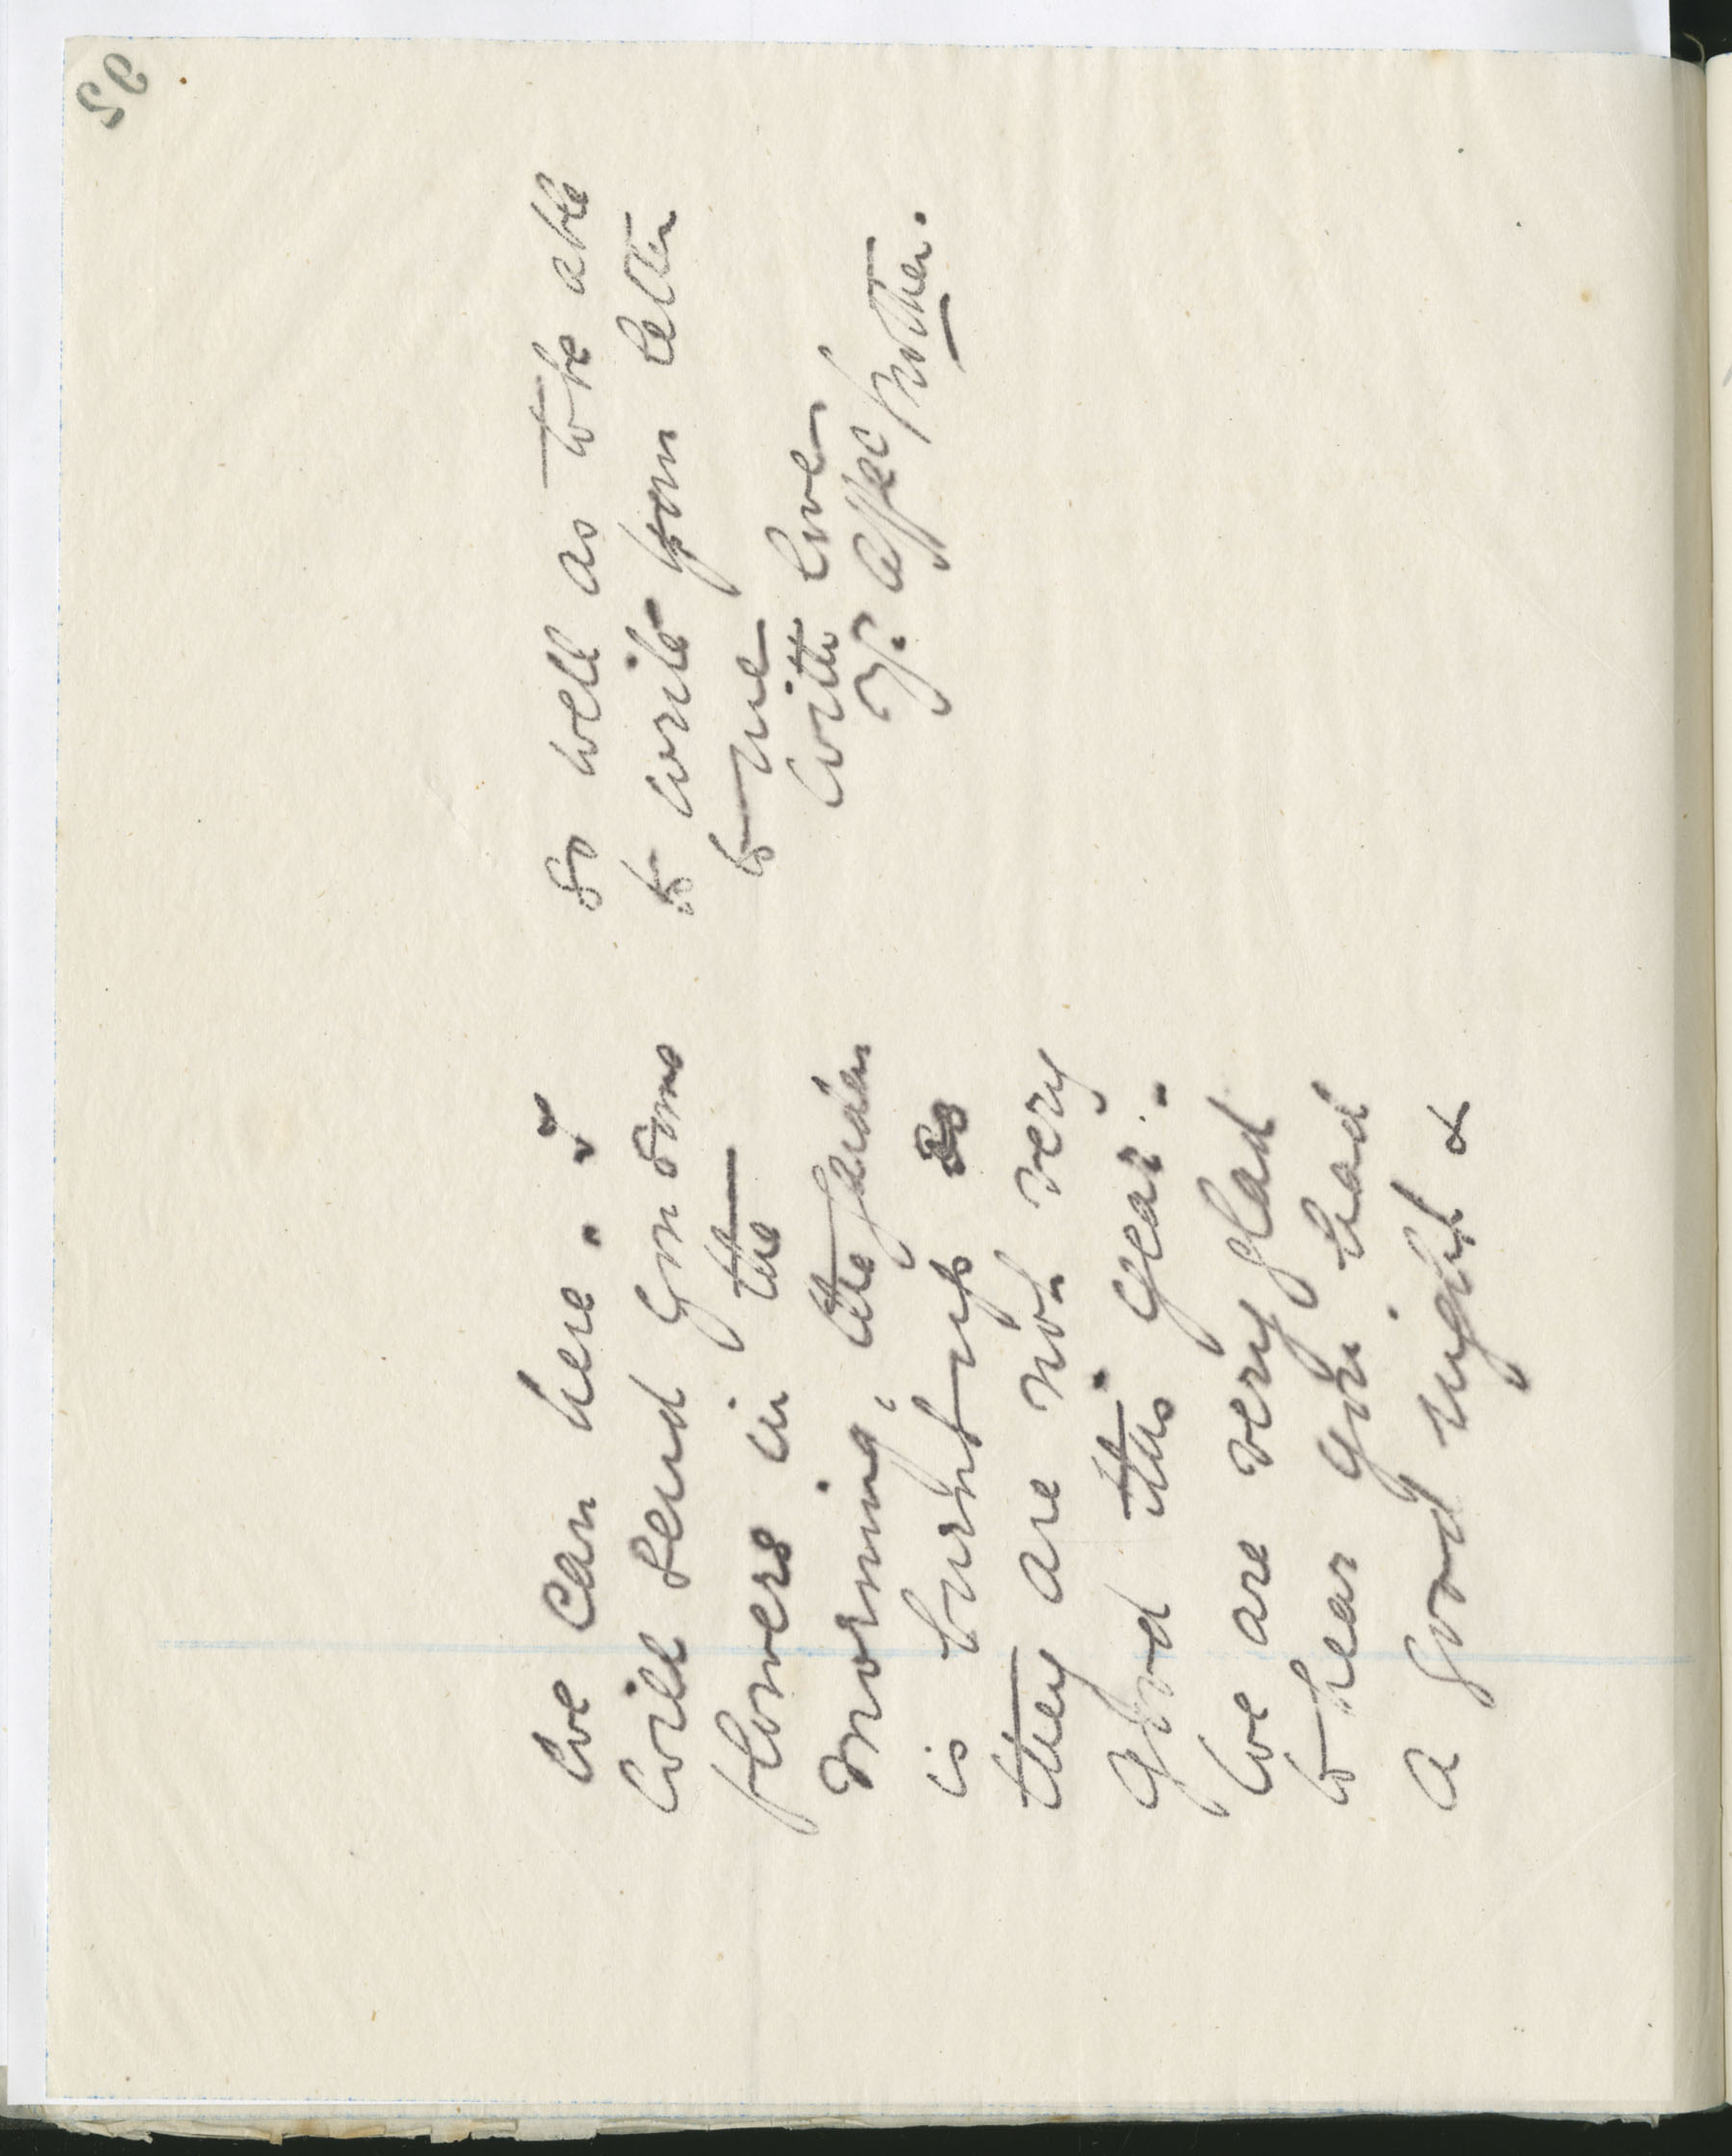 we can here. I
will send you some
flowers in the
morning, the garden
is burnt up so
they are not very
good this year.
we are very glad
to hear you had
a good night &
so well as to be able
to write your letter
to me
with love
Yr. affec Mother.